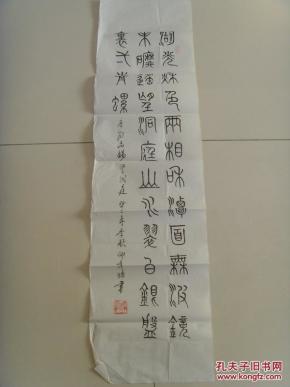 湖光秋色兩相和潭面無波鏡
未磨遙望洞庭山水翠白銀盤
裏弌青螺
唐劉禹錫望洞庭 書
孔夫子旧书网